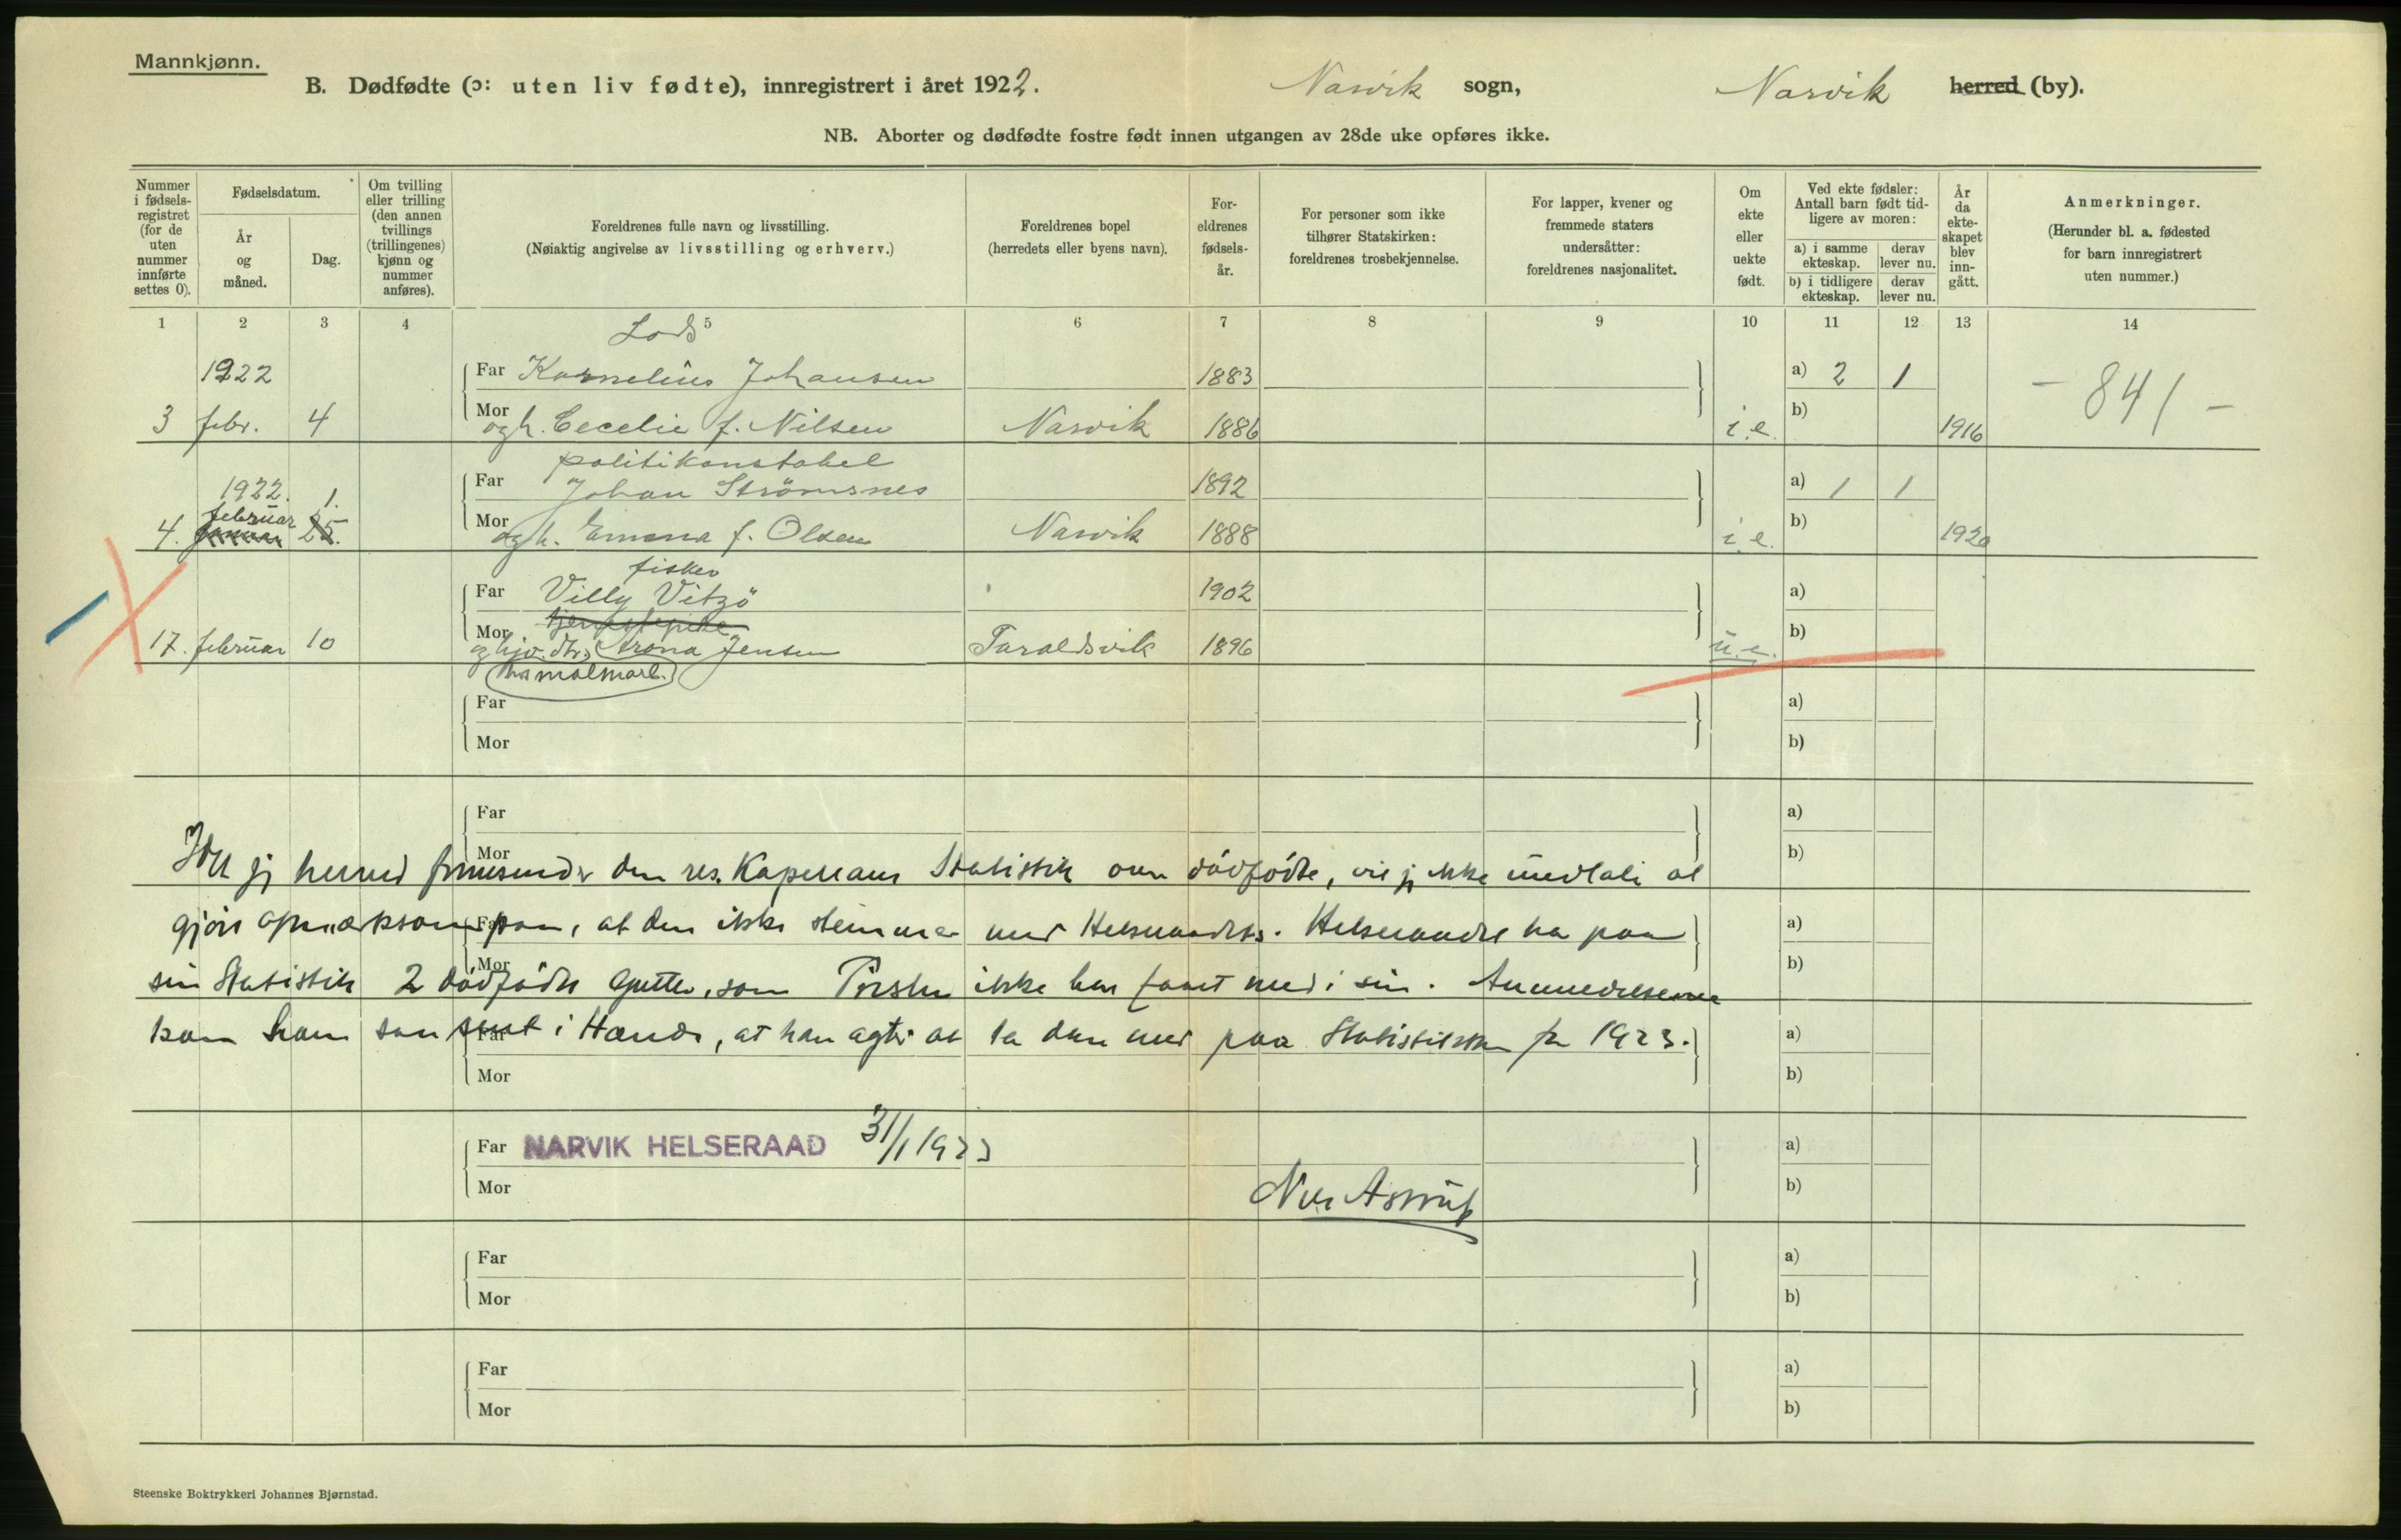 Mannkjønn.
B. Dødfødte (ɔ: uten liv fødte), innregistrert i året 1922. Narvik sogn, Narvik herred (by).
NB. Aborter og dødfødte fostre født innen utgangen av 28de uke opføres ikke.
Nummer i fødselsregistret (for de uten nummer innførte settes 0).
Fødselsdatum.
År og måned.
Dag.
Om tvilling eller trilling (den annen tvillings (trillingenes) kjønn og nummer anføres).
Foreldrenes fulle navn og livsstilling.
(Nøiaktig angivelse av livsstilling og erhverv.)
Foreldrenes bopel
(herredets eller byens navn).
Foreldrenes fødselsår.
For personer som ikke tilhører Statskirken: foreldrenes trosbekjennelse.
For lapper, kvener og fremmede staters undersåtter: foreldrenes nasjonalitet.
Om ekte eller uekte født.
Ved ekte fødsler: Antall barn født tidligere av moren:
a) i samme ekteskap. derav lever nu.
b) i tidligere ekteskap. derav lever nu.
År da ekteskapet blev inngått.
Anmerkninger.
(Herunder bl. a. fødested for barn innregistrert uten nummer.)
1 2 3 4 5 6 7 8 9 10 11 12 13 14
Lods
1922 Far Kornelius Johansen 1883 a) 2 1
3 febr. 4 Mor og h. Cecelie f. Nilsen Narvik 1886 i.e. b) 1916 - 841 -
politikonstabel
1922. 1. Far Johan Strömsnes 1892 a) 1 1
4. februar januar 25. Mor og h. Emma f. Olsen Narvik 1888 i.e. b) 1920
fisker
Far Villy Vitzö 1902 a)
tjenestepike
17. februar 10 Mor og hjv. dtr. Arona Jensen Taraldsvik 1896 u.e. b)
Far a)
Mor b)
Far a)
Mor b)
Idet jeg herved den res. Kapellans Statistik over dödfödte, vil jeg ikke undlate at
gjöre opmærksom paa, at den ikke stemmer med Helseraadets. Helseraadet har paa
Far a)
Mor b)
sin Statistik 2 dödfödte gutter, som Presten ikke har faaet med i sin. Anmeldelserne
kom ham saa sent i Hænde, at han agter at ta dem med paa Statistikken for 1923.
Far a)
Mor b)
Far NARVIK HELSERAAD 31/1 1923 a)
Mor b)
Astrup
Far a)
Mor b)
Far a)
Mor b)
Steenske Boktrykkeri Johannes Bjørnstad.